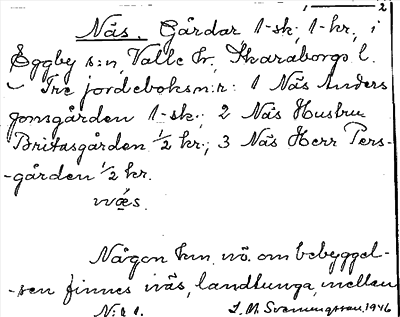 2
Näs. Gårdar 1-sk, 1-kr., i
Eggby s:n, Valle hr, Skaraborgs l.
Tre jordeboksn:r: 1 Näs Anders
jonsgården 1-sk.; 2 Näs Hustru
Britasgården 1/2 kr.; 3 Näs Herr Pers-
-gården 1/2 kr.
näs.
Någon km. nö. om bebyggel-
-sen finnes näs, landtunga, mellan
J. M. Svenningsson, 1946